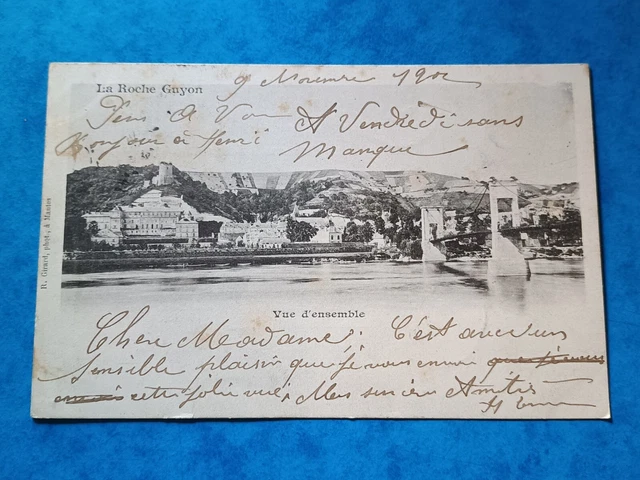 La Roche Guyon
9 Novembre 1902
Pens à Vou
Bonjour à Henri
A Vendredi sans
Manque
H. Girard, phot., à Mantes
Vue d'ensemble
Chere Madame; C'est avec un
Sensible plaisir que je vous envoi
cette jolie vue, Mes sincère Amitiés